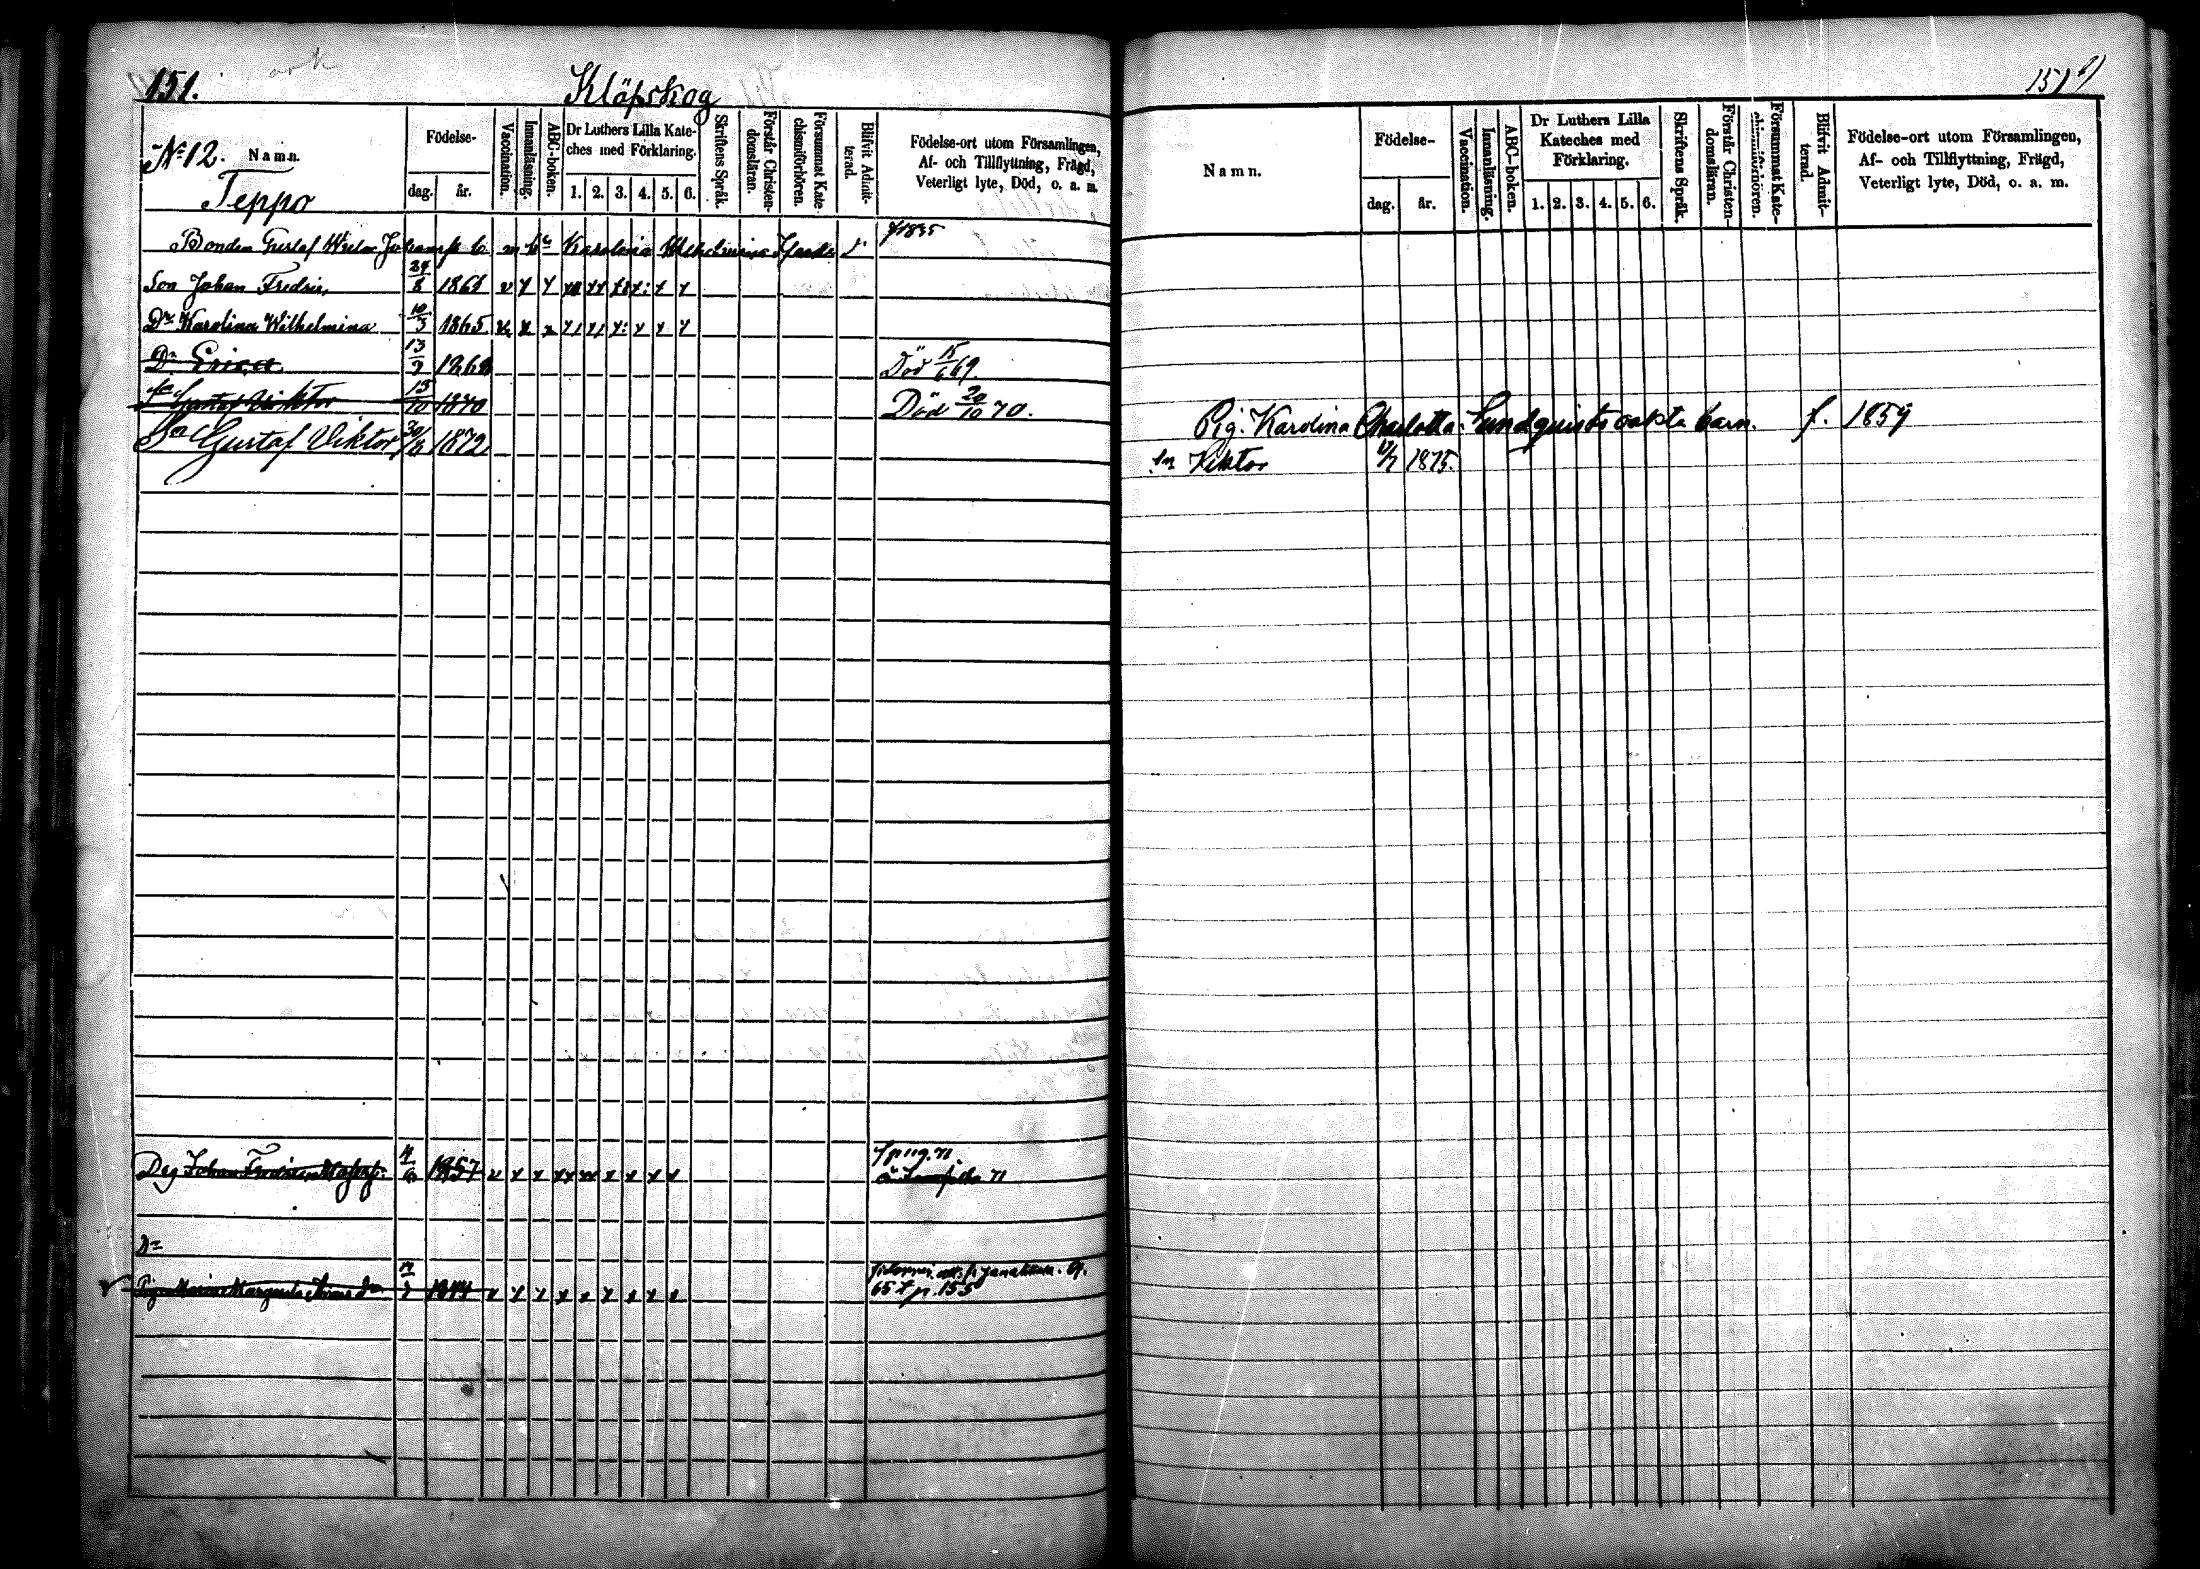 151.
Klöpskog
N:o 12. Namn.
Teppo
Födelse-
dag. år.
Vaccination.
Innanläsning.
ABC-boken.
Dr Luthers Lilla Kate-
ches med Förklaring.
1. 2. 3. 4. 5. 6.
Skriftens Språk.
Förstår Christen-
domsläran.
Försummat Kate-
chismiförhören.
Blifvit Admit-
terad.
Födelse-ort utom Församlingen,
Af- och Tillflyttning, Frägd,
Veterligt lyte, Död, o. a. m.
Bonden Gustaf Karolina f 1835
Son Johan Fredric 29/8 1861
Dr Karolina Wilhelmina 1865
Dr Erica 13/9 1868 Död 15/6 69.
Sn Gustaf Viktor 15/10 1870 Död 20/10 70.
Sn Gustaf Viktor 30/8 1872
Dg Johan 1857 71
Dr
Pig. Maria Margareta 1844
65 p. 155
151
Namn.
Födelse-
dag. år.
Vaccination.
Innanläsning.
ABC-boken.
Dr Luthers Lilla
Kateches med
Förklaring.
1. 2. 3. 4. 5. 6.
Skriftens Språk.
Förstår Christen-
domsläran.
Försummat Kate-
chismiförhören.
Blifvit Admit-
terad.
Födelse-ort utom Församlingen,
Af- och Tillflyttning, Frägd,
Veterligt lyte, Död, o. a. m.
Pig. Karolina Charlotta Lundquists oäkta barn. f. 1859
Sn Viktor 1875.